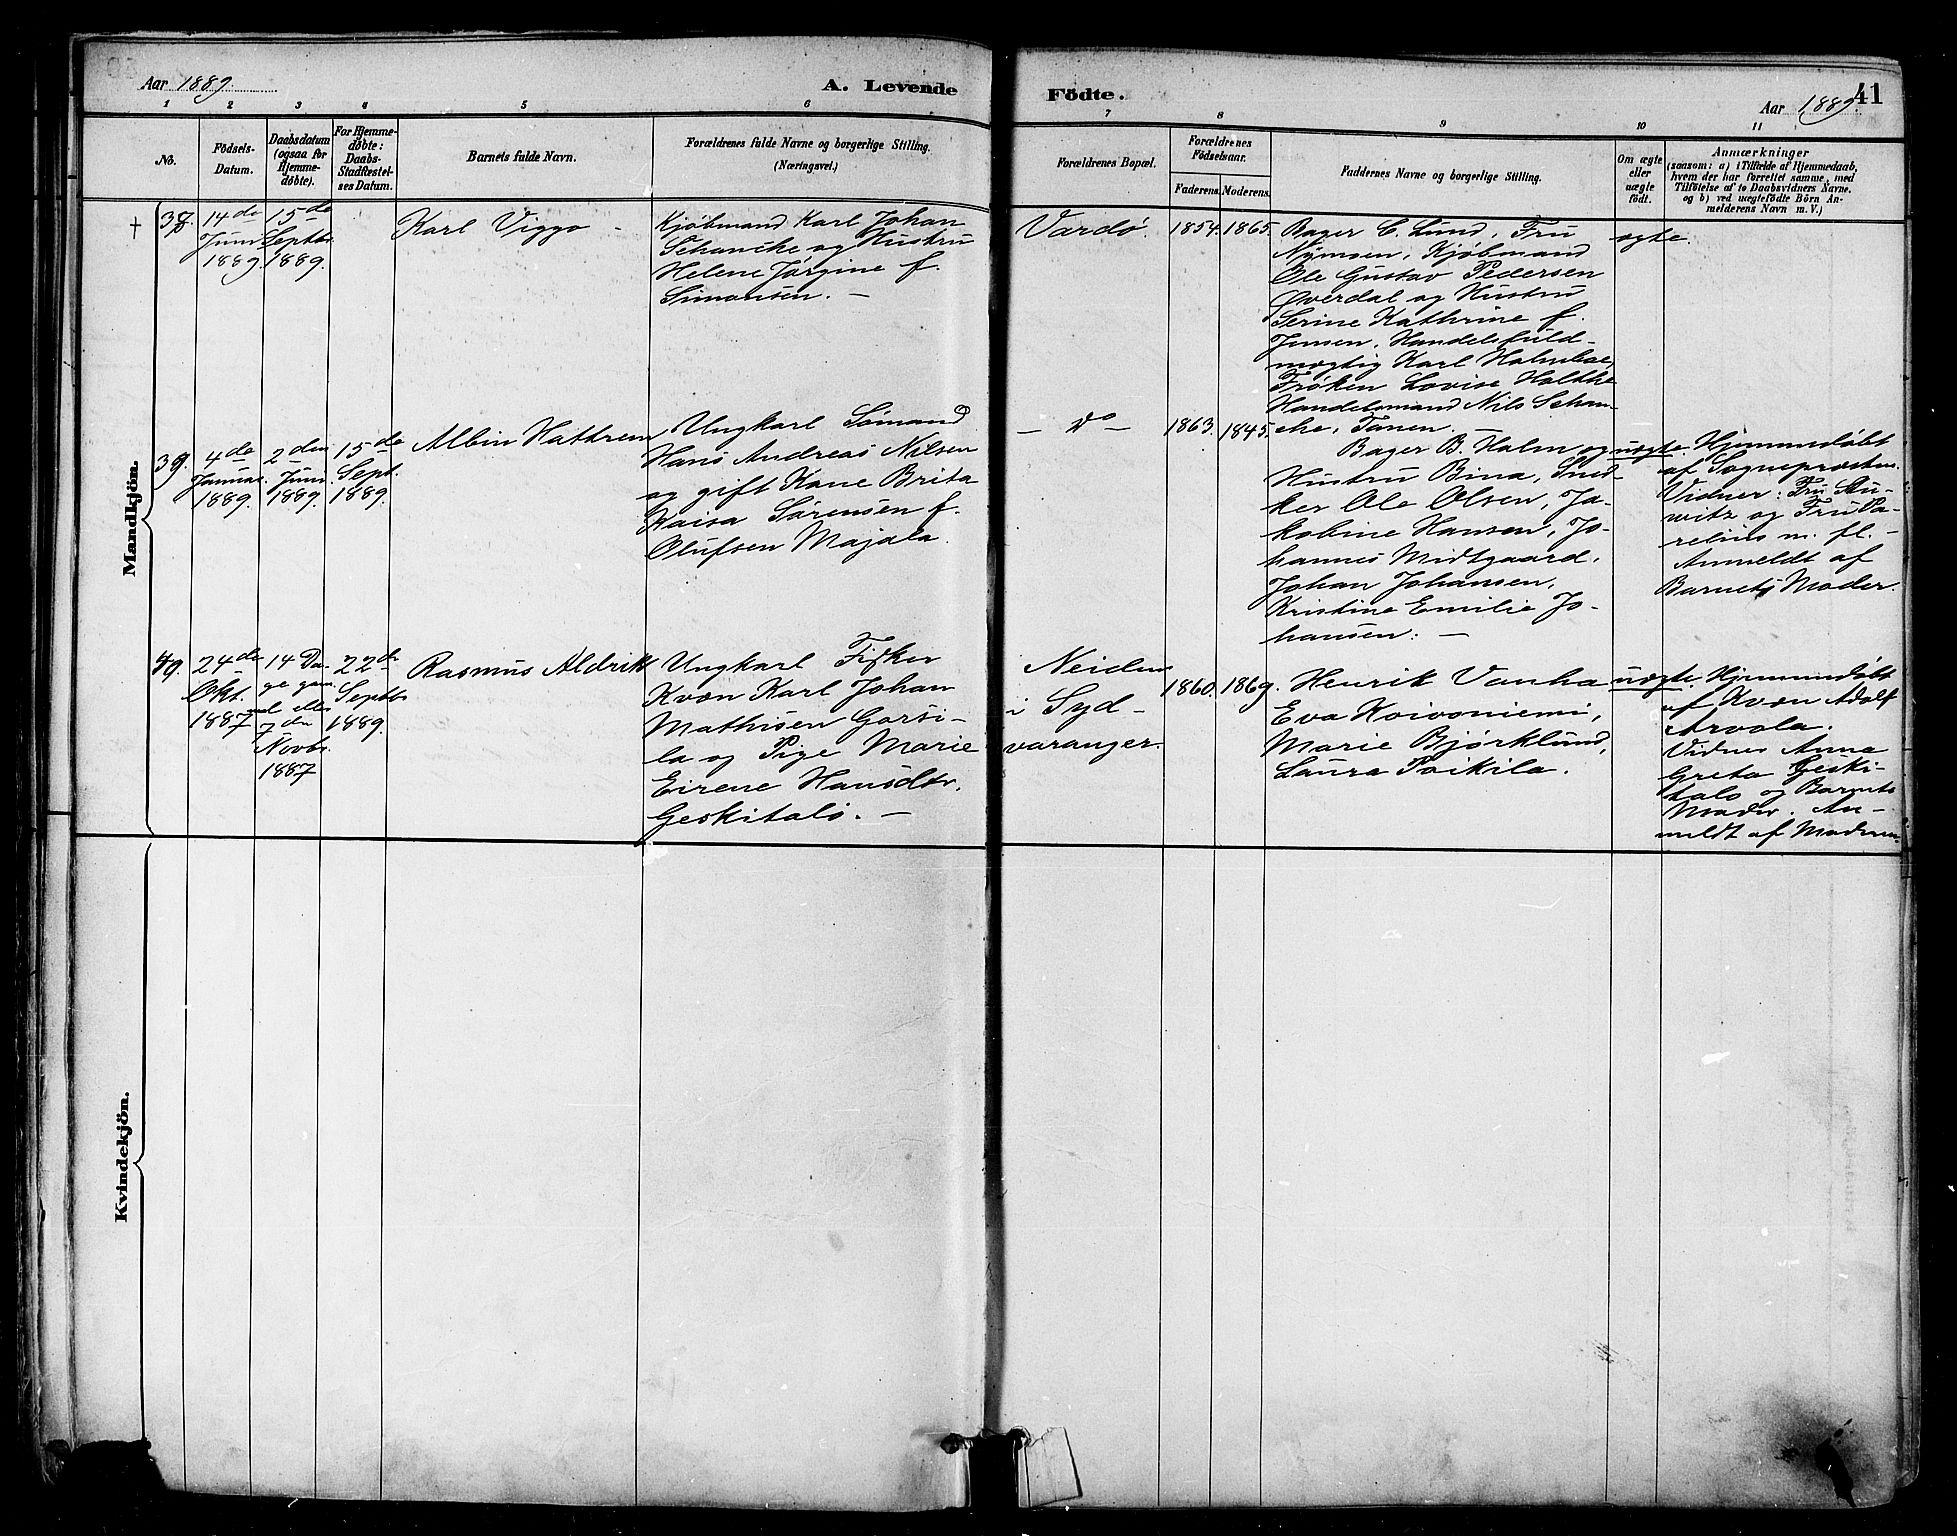 Aar 1889.
A. Levende
Födte.
Aar 1889.
41
1
2
3
4
5
6
7
8
9
10
11
No.
Födsels-
Datum.
Daabsdatum
(ogsaa for
Hjemme-
døbte).
For Hjemme-
døbte:
Daabs-
Stadfæstel-
ses Datum.
Barnets fulde Navn.
Forældrenes fulde Navne og borgerlige Stilling.
(Næringsvei.)
Forældrenes Bopæl.
Forældrenes
Födselsaar.
Faderens.
Moderens.
Faddernes Navne og borgerlige Stilling.
Om ægte
eller
uægte
født.
Anmærkninger
(saasom: a) i Tilfælde af Hjemmedaab,
hvem der har forrettet samme, med
Tilføielse af to Daabsvidners Navne.
og b) ved uægtefødte Börn An-
melderens Navn m. V.)
Mandkjön.
†
38.
14de
Juni
1889.
15de
Septbr.
1889.
Karl Viggo –
Kjøbmand Karl Johan
Schancke og Hustru
Helene Jørgine f.
Simonsen. –
Vardö.
1854.
1865.
Bager C. Lund, Fru
Nymoen, Kjøbmand
Ole Gustav Pedersen
Overdal og Hustru
Serine Kathrine f.
Jensen, Handelsfuld-
mægtig Karl Holmboe,
Frøken Lovise Holthe
Handelsmand Nils Schan-
cke, Tanen. –
ægte.
39.
4de
Januar
1889.
2den
Juni
1889.
15de
Sept.
1889.
Albin Hathrem
Ungkarl Sømand
Hans Andreas Nilsen
og gift Kone Brita
Kaisa Sørensen f.
Olufsen Majala.
– Do –
1863.
1845.
Bager B. Holm og
Hustru Bina, Sned-
ker Ole Olsen, Ja-
kobine Hansen, Jo-
hannes Midtgaard,
Johan Johansen,
Kristine Emilie Jo-
hansen: –
uægte.
Hjemmedøbt
af Sognepresten.
Vidner: Fru
og Fru
m. fl. –
Anmeldt af
Barnets Moder.
40.
24de
Okt.
1887
14 Da-
ge gam-
mel eller
7de
Novbr.
1887
22de
Septbr.
1889.
Rasmus Aldrik
Ungkarl Fisker
Kvæn Karl Johan
Mathisen Gorsi-
la og Pige Marie
Eirene Hansdtr.
Geskitalo. –
Neiden
i Syd-
varanger.
1860.
1869.
Henrik Vanha
Eva Koivoniemi,
Marie Bjørklund,
Laura Poikila.
uægte.
Hjemmedøbt
af Kvæn Adolf
Arvola.
Vidner Anna
Greta Geski-
talo og Barnets
Moder. An-
meldt af Moderen.
Kvindekjön.